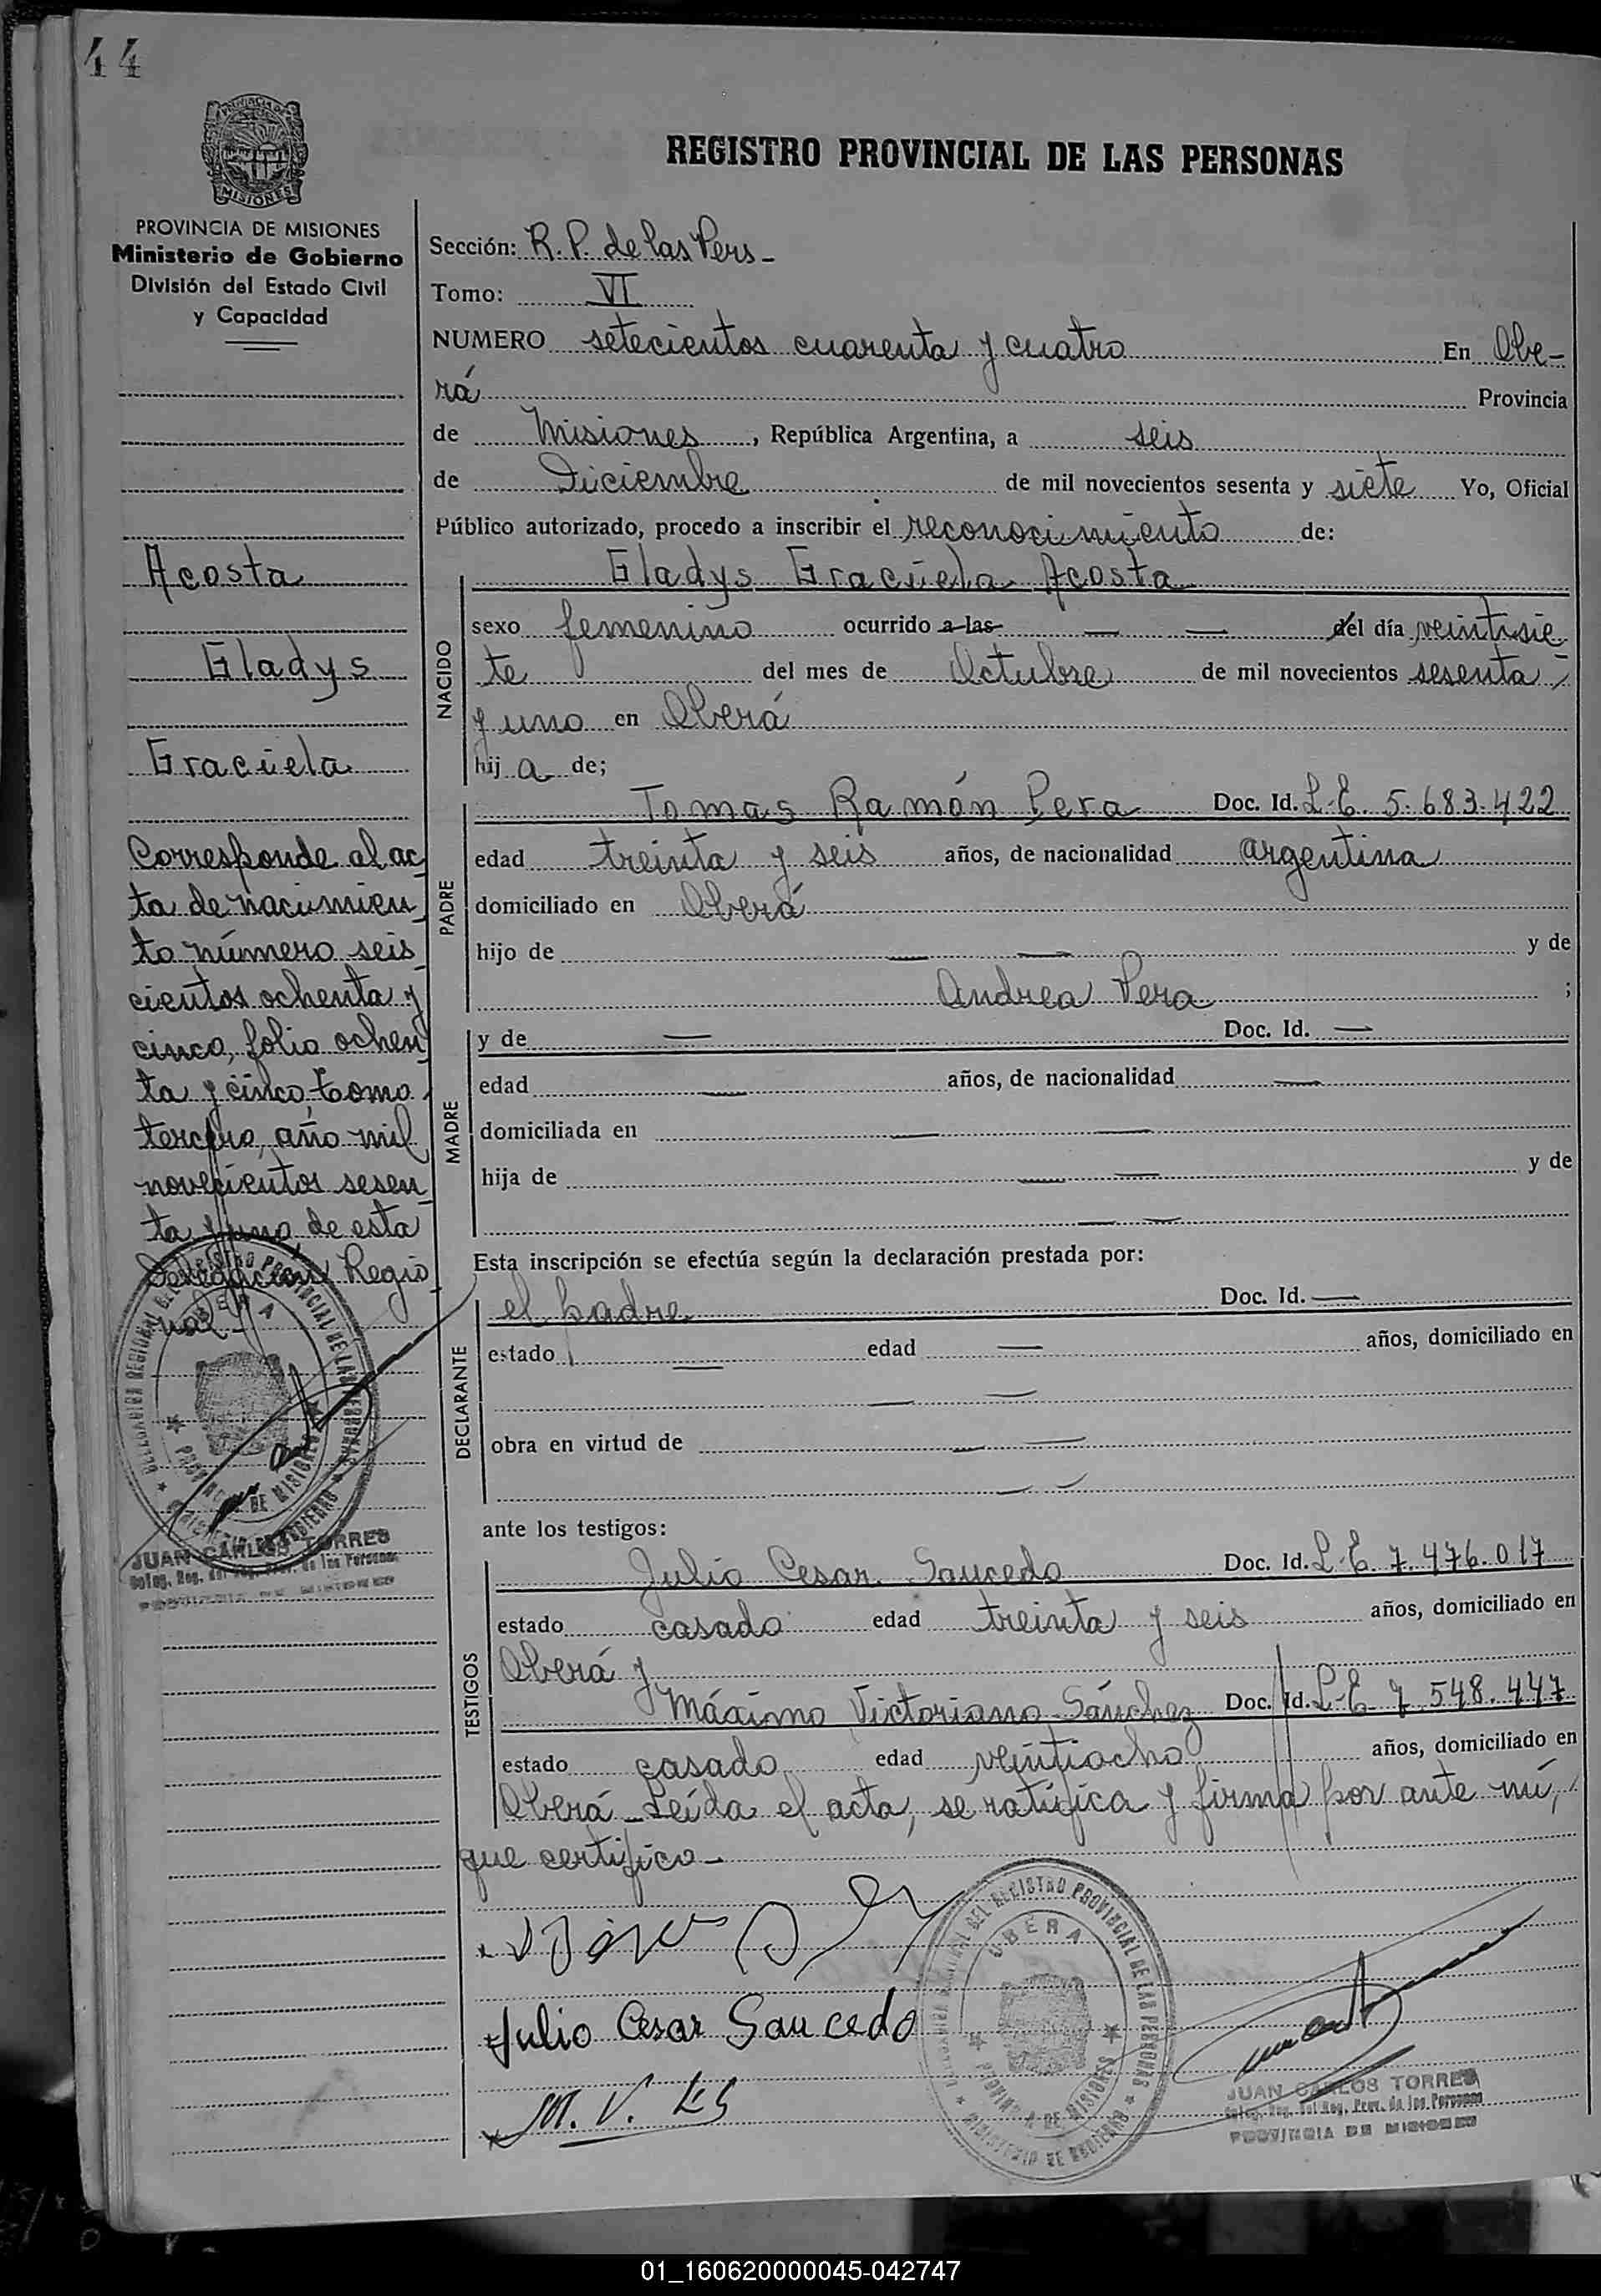 44
PROVINCIA DE
MISIONES
REGISTRO PROVINCIAL DE LAS PERSONAS
PROVINCIA DE MISIONES
Ministerio de Gobierno
División del Estado Civil
y Capacidad
Acosta
Gladys
Graciela
Corresponde al ac-
ta de nacimien-
to número seis-
cientos ochenta y
cinco, folio ochen-
ta y cinco, tomo
tercero, año mil
novecientos sesen-
ta y uno, de esta
Delegación Regio-
nal.-
JUAN CARLOS TORRES
Deleg. Reg. del Reg. Prov. de las Personas
PROVINCIA DE MISIONES
Sección: R. P. de las Pers-
Tomo: VI
NUMERO setecientos cuarenta y cuatro En Obe-
rá Provincia
de Misiones, República Argentina, a seis
de Diciembre de mil novecientos sesenta y siete Yo, Oficial
Público autorizado, procedo a inscribir el reconocimiento de:
NACIDO
Gladys Graciela Acosta
sexo femenino ocurrido a las — — del día veintisie-
te del mes de Octubre de mil novecientos sesenta
y uno en Oberá
hij a de;
PADRE
Tomas Ramón Pera Doc. Id. L.E. 5.683.422
edad treinta y seis años, de nacionalidad argentina
domiciliado en Oberá
hijo de — — y de
Andrea Pera ;
MADRE
y de — Doc. Id. —
edad — años, de nacionalidad —
domiciliada en — —
hija de — — y de
— —
Esta inscripción se efectúa según la declaración prestada por:
DECLARANTE
el padre Doc. Id. —
estado — edad — años, domiciliado en
— —
obra en virtud de — —
— —
ante los testigos:
TESTIGOS
Julio Cesar Saucedo Doc. Id. L.E. 7.476.017
estado casado edad treinta y seis años, domiciliado en
Oberá y
Máximo Victoriano Sánchez Doc. Id. L.E 7.548.447
estado casado edad veintiocho años, domiciliado en
Oberá - Leída el acta, se ratifica y firma por ante mí,
que certifico.-
Julio Cesar Saucedo
M. V.
DELEGACION REGIONAL DEL REGISTRO PROVINCIAL DE LAS PERSONAS
OBERA
PROVINCIA DE MISIONES
MINISTERIO DE GOBIERNO
JUAN CARLOS TORRES
Deleg. Reg. del Reg. Prov. de las Personas
PROVINCIA DE MISIONES
01_160620000045-042747